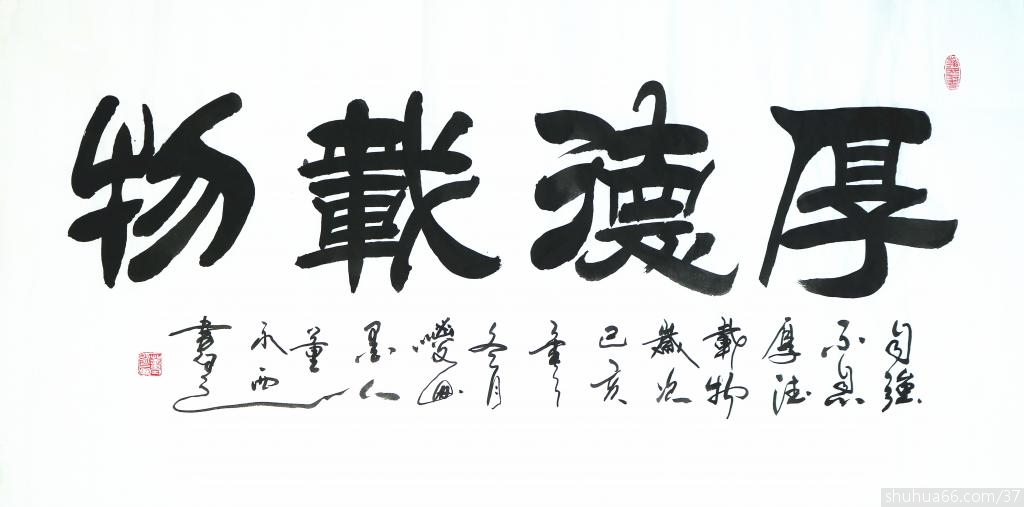 厚德載物
自強
不息
厚德
載物
歲次
己亥
冬月
墨人
董
永西
書
shuhua66.com/37